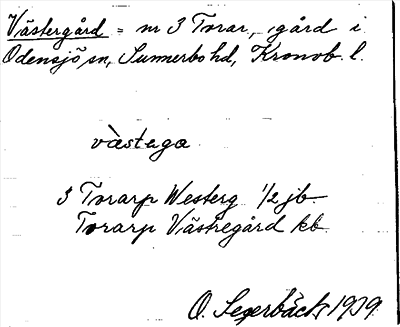 Västergård = nr 3 Torar, gård i
Odensjö sn, Sunnerbo hd, Kronob. l.
västaga
3 Torarp Westerg 1/2 jb
Torarp Västregård kb
O. Segerbäck 1939